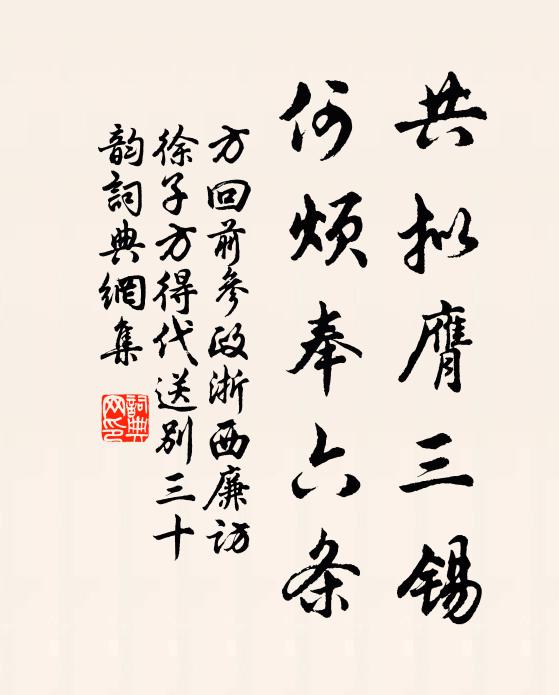 共拟膺三锡
何烦奉六条
方回前參政浙西廉访
徐子方得代送别三十
韵詞典網集
詞典網印